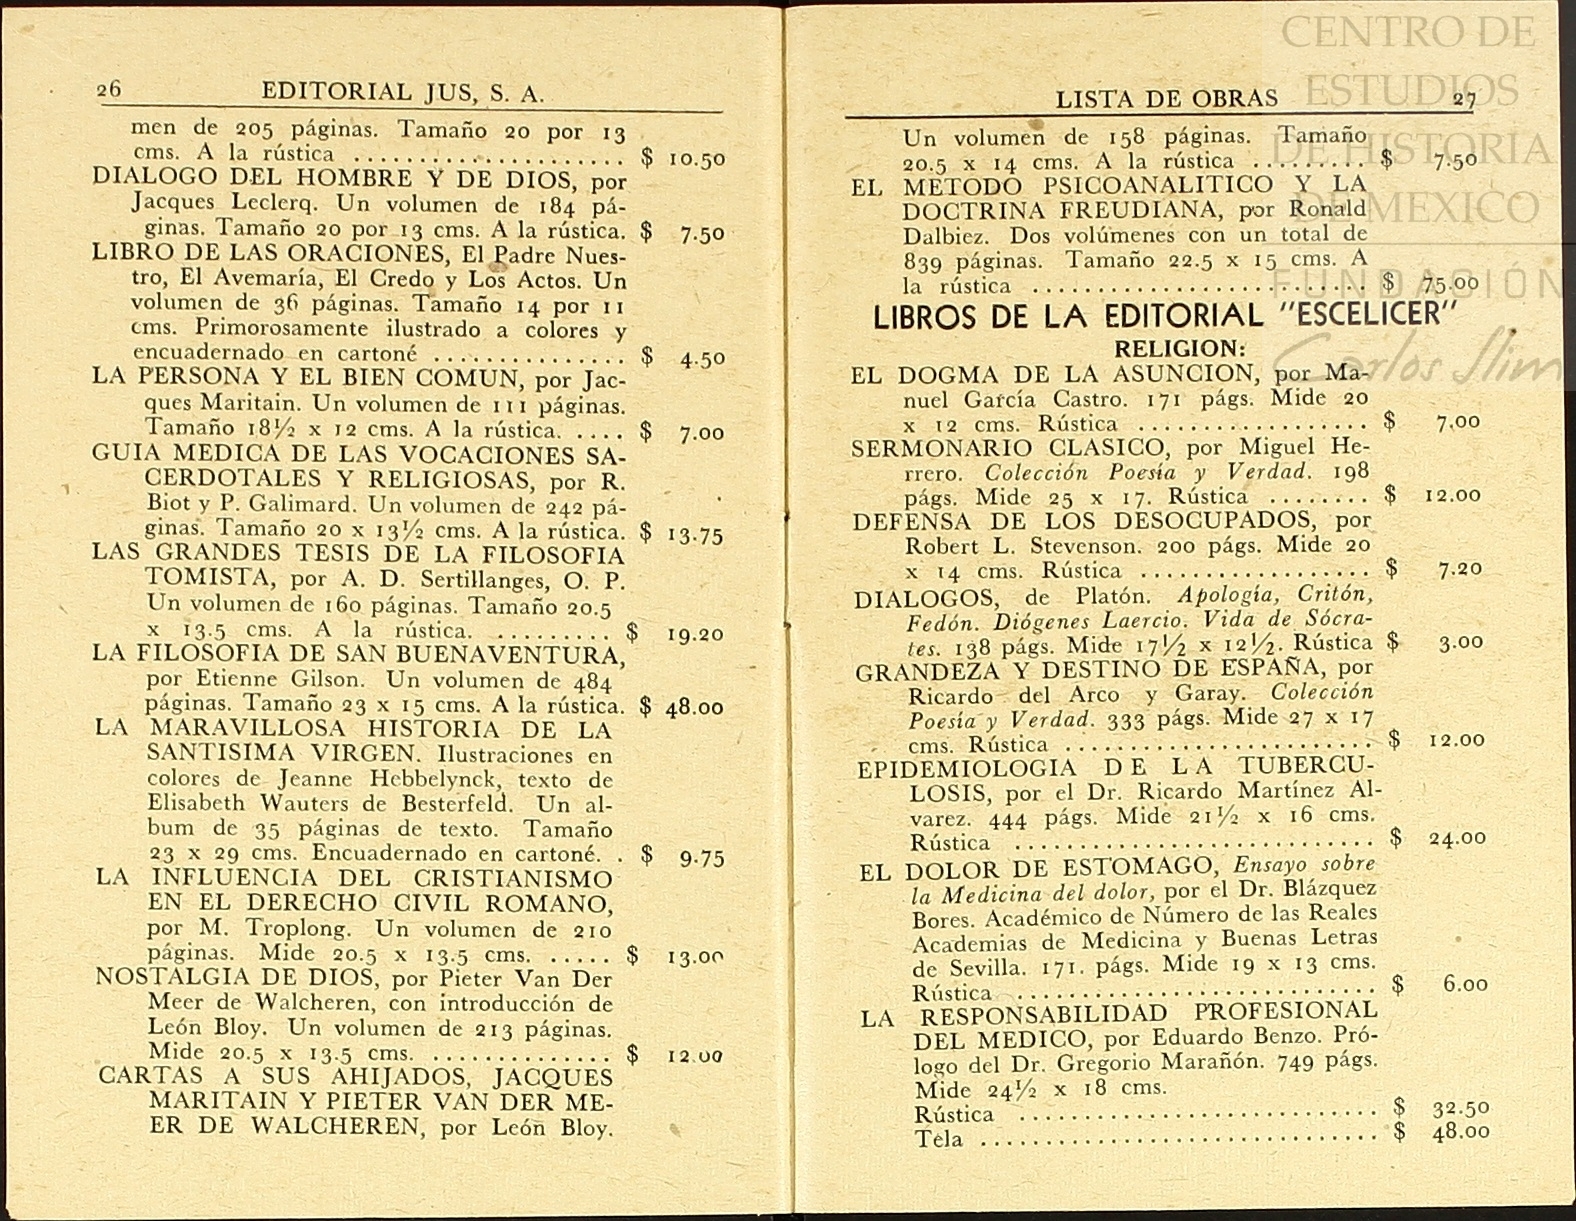 26 EDITORIAL JUS, S. A.
men de 205 páginas. Tamaño 20 por 13
cms. A la rústica ..................... $ 10.50
DIALOGO DEL HOMBRE Y DE DIOS, por
Jacques Leclerq. Un volumen de 184 pá-
ginas. Tamaño 20 por 13 cms. A la rústica. $ 7.50
LIBRO DE LAS ORACIONES, El Padre Nues-
tro, El Avemaría, El Credo y Los Actos. Un
volumen de 36 páginas. Tamaño 14 por 11
cms. Primorosamente ilustrado a colores y
encuadernado en cartoné ............... $ 4.50
LA PERSONA Y EL BIEN COMUN, por Jac-
ques Maritain. Un volumen de 111 páginas.
Tamaño 18½ x 12 cms. A la rústica. .... $ 7.00
GUIA MEDICA DE LAS VOCACIONES SA-
CERDOTALES Y RELIGIOSAS, por R.
Biot y P. Galimard. Un volumen de 242 pá-
ginas. Tamaño 20 x 13½ cms. A la rústica. $ 13.75
LAS GRANDES TESIS DE LA FILOSOFIA
TOMISTA, por A. D. Sertillanges, O. P.
Un volumen de 160 páginas. Tamaño 20.5
x 13.5 cms. A la rústica. ......... $ 19.20
LA FILOSOFIA DE SAN BUENAVENTURA,
por Etienne Gilson. Un volumen de 484
páginas. Tamaño 23 x 15 cms. A la rústica. $ 48.00
LA MARAVILLOSA HISTORIA DE LA
SANTISIMA VIRGEN. Ilustraciones en
colores de Jeanne Hebbelynck, texto de
Elisabeth Wauters de Besterfeld. Un al-
bum de 35 páginas de texto. Tamaño
23 x 29 cms. Encuadernado en cartoné. . $ 9.75
LA INFLUENCIA DEL CRISTIANISMO
EN EL DERECHO CIVIL ROMANO,
por M. Troplong. Un volumen de 210
páginas. Mide 20.5 x 13.5 cms. ..... $ 13.00
NOSTALGIA DE DIOS, por Pieter Van Der
Meer de Walcheren, con introducción de
León Bloy. Un volumen de 213 páginas.
Mide 20.5 x 13.5 cms. .............. $ 12.00
CARTAS A SUS AHIJADOS, JACQUES
MARITAIN Y PIETER VAN DER ME-
ER DE WALCHEREN, por León Bloy.
LISTA DE OBRAS 27
Un volumen de 158 páginas. Tamaño
20.5 x 14 cms. A la rústica ......... $ 7.50
EL METODO PSICOANALITICO Y LA
DOCTRINA FREUDIANA, por Ronald
Dalbiez. Dos volúmenes con un total de
839 páginas. Tamaño 22.5 x 15 cms. A
la rústica .......................... $ 75.00
LIBROS DE LA EDITORIAL "ESCELICER"
RELIGION:
EL DOGMA DE LA ASUNCION, por Ma-
nuel García Castro. 171 págs. Mide 20
x 12 cms. Rústica .................. $ 7.00
SERMONARIO CLASICO, por Miguel He-
rrero. Colección Poesía y Verdad. 198
págs. Mide 25 x 17. Rústica ........ $ 12.00
DEFENSA DE LOS DESOCUPADOS, por
Robert L. Stevenson. 200 págs. Mide 20
x 14 cms. Rústica .................. $ 7.20
DIALOGOS, de Platón. Apología, Critón,
Fedón. Diógenes Laercio. Vida de Sócra-
tes. 138 págs. Mide 17½ x 12½. Rústica $ 3.00
GRANDEZA Y DESTINO DE ESPAÑA, por
Ricardo del Arco y Garay. Colección
Poesía y Verdad. 333 págs. Mide 27 x 17
cms. Rústica ........................ $ 12.00
EPIDEMIOLOGIA DE LA TUBERCU-
LOSIS, por el Dr. Ricardo Martínez Al-
varez. 444 págs. Mide 21½ x 16 cms.
Rústica ............................ $ 24.00
EL DOLOR DE ESTOMAGO, Ensayo sobre
la Medicina del dolor, por el Dr. Blázquez
Bores. Académico de Número de las Reales
Academias de Medicina y Buenas Letras
de Sevilla. 171. págs. Mide 19 x 13 cms.
Rústica ............................ $ 6.00
LA RESPONSABILIDAD PROFESIONAL
DEL MEDICO, por Eduardo Benzo. Pró-
logo del Dr. Gregorio Marañón. 749 págs.
Mide 24½ x 18 cms.
Rústica ............................ $ 32.50
Tela ............................... $ 48.00
CENTRO DE
ESTUDIOS
DE HISTORIA
DE MEXICO
FUNDACIÓN
Carlos Slim